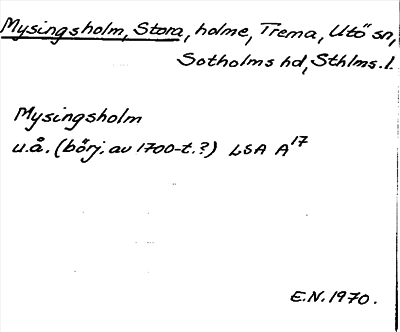 Mysingsholm, Stora, holme, Trema, Utö sn,
Sotholms hd, Sthlms. l.
Mysingsholm
u.å. (börj. av 1700-t.?) LSA A¹⁷
E.N. 1970.